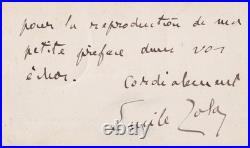 pour la reproduction de ma
petite préface dans vos
échos.
Cordialement
Emile Zola